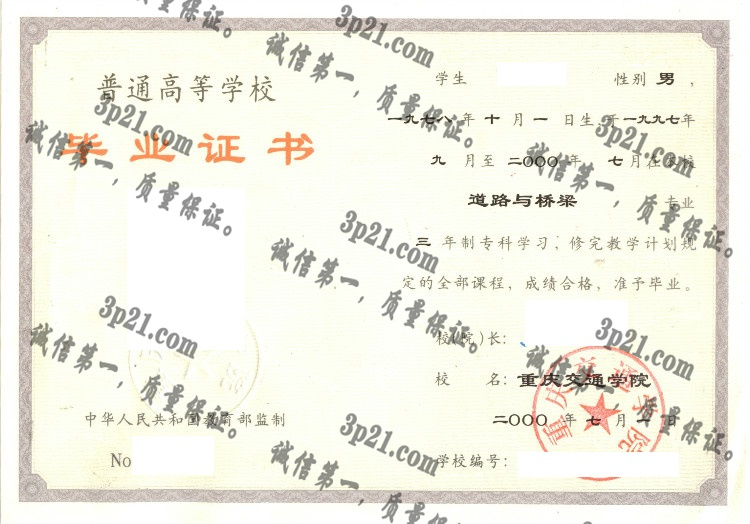 普通高等学校
毕业证书
中华人民共和国教育部监制
No
学生 性别 男，
一九七八 年 十 月 一 日生，于一九九七年
九 月至 二〇〇〇 年 七 月在本校
道路与桥梁 专业
三 年制专科学习，修完教学计划规
定的全部课程，成绩合格，准予毕业。
校(院)长：
校 名：重庆交通学院
二〇〇〇 年 七 月 一 日
学校编号：
重庆交通学院
3p21.com
诚信第一，质量保证。
3p21.com
诚信第一，质量保证。
3p21.com
诚信第一，质量保证。
3p21.com
诚信第一，质量保证。
3p21.com
诚信第一，质量保证。
3p21.com
诚信第一，质量保证。
3p21.com
诚信第一，质量保证。
质量保证。